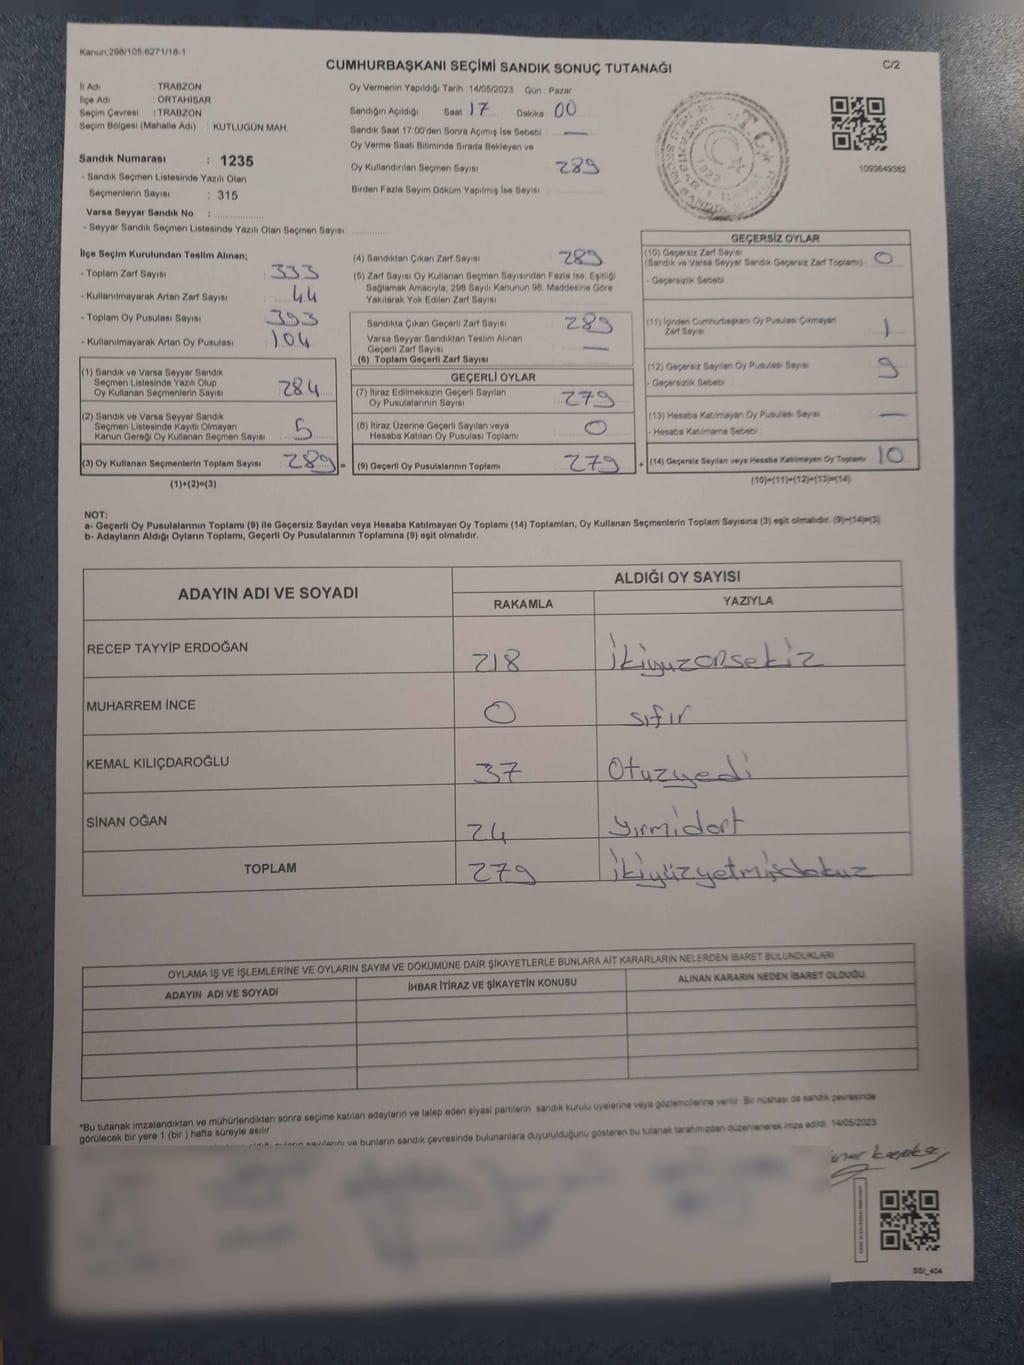 Kanun:298/105,6271/16-1
CUMHURBAŞKANI SEÇİMİ SANDIK SONUÇ TUTANAĞI
C/2
İl Adı : TRABZON
İlçe Adı : ORTAHİSAR
Seçim Çevresi : TRABZON
Seçim Bölgesi (Mahalle Adı) : KUTLUGÜN MAH.
Sandık Numarası : 1235
- Sandık Seçmen Listesinde Yazılı Olan
Seçmenlerin Sayısı : 315
Varsa Seyyar Sandık No :
- Seyyar Sandık Seçmen Listesinde Yazılı Olan Seçmen Sayısı:
Oy Vermenin Yapıldığı Tarih : 14/05/2023 Gün : Pazar
Sandığın Açıldığı Saat 17 Dakika 00
Sandık Saat 17:00'den Sonra Açımış İse Sebebi : —
Oy Verme Saati Bitiminde Sırada Bekleyen ve
Oy Kullandırılan Seçmen Sayısı 289
Birden Fazla Sayım Döküm Yapılmış İse Sayısı :
1093649382
İlçe Seçim Kurulundan Teslim Alınan;
- Toplam Zarf Sayısı : 333
- Kullanılmayarak Artan Zarf Sayısı : 44
- Toplam Oy Pusulası Sayısı : 393
- Kullanılmayarak Artan Oy Pusulası : 104
(1) Sandık ve Varsa Seyyar Sandık
Seçmen Listesinde Yazılı Olup
Oy Kullanan Seçmenlerin Sayısı : 284
(2) Sandık ve Varsa Seyyar Sandık
Seçmen Listesinde Kayıtlı Olmayan
Kanun Gereği Oy Kullanan Seçmen Sayısı : 5
(3) Oy Kullanan Seçmenlerin Toplam Sayısı : 289 =
(1)+(2)=(3)
(4) Sandıktan Çıkan Zarf Sayısı : 289
(5) Zarf Sayısı Oy Kullanan Seçmen Sayısından Fazla İse, Eşitliği
Sağlamak Amacıyla, 298 Sayılı Kanunun 98. Maddesine Göre
Yakılarak Yok Edilen Zarf Sayısı :
Sandıkta Çıkan Geçerli Zarf Sayısı : 289
Varsa Seyyar Sandıktan Teslim Alınan
Geçerli Zarf Sayısı : —
(6) Toplam Geçerli Zarf Sayısı
GEÇERLİ OYLAR
(7) İtiraz Edilmeksizin Geçerli Sayılan
Oy Pusulalarının Sayısı : 279
(8) İtiraz Üzerine Geçerli Sayılan veya
Hesaba Katılan Oy Pusulası Toplamı : 0
(9) Geçerli Oy Pusulalarının Toplamı : 279 +
GEÇERSİZ OYLAR
(10) Geçersiz Zarf Sayısı
(Sandık ve Varsa Seyyar Sandık Geçersiz Zarf Toplamı) : 0
- Geçersizlik Sebebi :
(11) İçinden Cumhurbaşkanı Oy Pusulası Çıkmayan
Zarf Sayısı : 1
(12) Geçersiz Sayılan Oy Pusulası Sayısı : 9
- Geçersizlik Sebebi :
(13) Hesaba Katılmayan Oy Pusulası Sayısı : —
- Hesaba Katılmama Sebebi :
(14) Geçersiz Sayılan veya Hesaba Katılmayan Oy Toplamı : 10
(10)+(11)+(12)+(13)=(14)
NOT:
a- Geçerli Oy Pusulalarının Toplamı (9) ile Geçersiz Sayılan veya Hesaba Katılmayan Oy Toplamı (14) Toplamları, Oy Kullanan Seçmenlerin Toplam Sayısına (3) eşit olmalıdır. (9)+(14)=(3)
b- Adayların Aldığı Oyların Toplamı, Geçerli Oy Pusulalarının Toplamına (9) eşit olmalıdır.
ADAYIN ADI VE SOYADI
ALDIĞI OY SAYISI
RAKAMLA YAZIYLA
RECEP TAYYİP ERDOĞAN 218 ikiyuzonsekiz
MUHARREM İNCE 0 sıfır
KEMAL KILIÇDAROĞLU 37 Otuzyedi
SİNAN OĞAN 24 yirmidört
TOPLAM 279 ikiyüzyetmişdokuz
OYLAMA İŞ VE İŞLEMLERİNE VE OYLARIN SAYIM VE DÖKÜMÜNE DAİR ŞİKAYETLERLE BUNLARA AİT KARARLARIN NELERDEN İBARET BULUNDUKLARI
ADAYIN ADI VE SOYADI
İHBAR İTİRAZ VE ŞİKAYETİN KONUSU
ALINAN KARARIN NEDEN İBARET OLDUĞU
*Bu tutanak imzalandıktan ve mühürlendikten sonra seçime katılan adayların ve talep eden siyasi partilerin sandık kurulu üyelerine veya gözlemcilerine verilir. Bir nüshası da sandık çevresinde
görülecek bir yere 1 (bir) hafta süreyle asılır.
ve bunların sandık çevresinde bulunanlara duyurulduğunu gösteren bu tutanak tarafımızdan düzenlenerek imza edildi. 14/05/2023
SSI_404